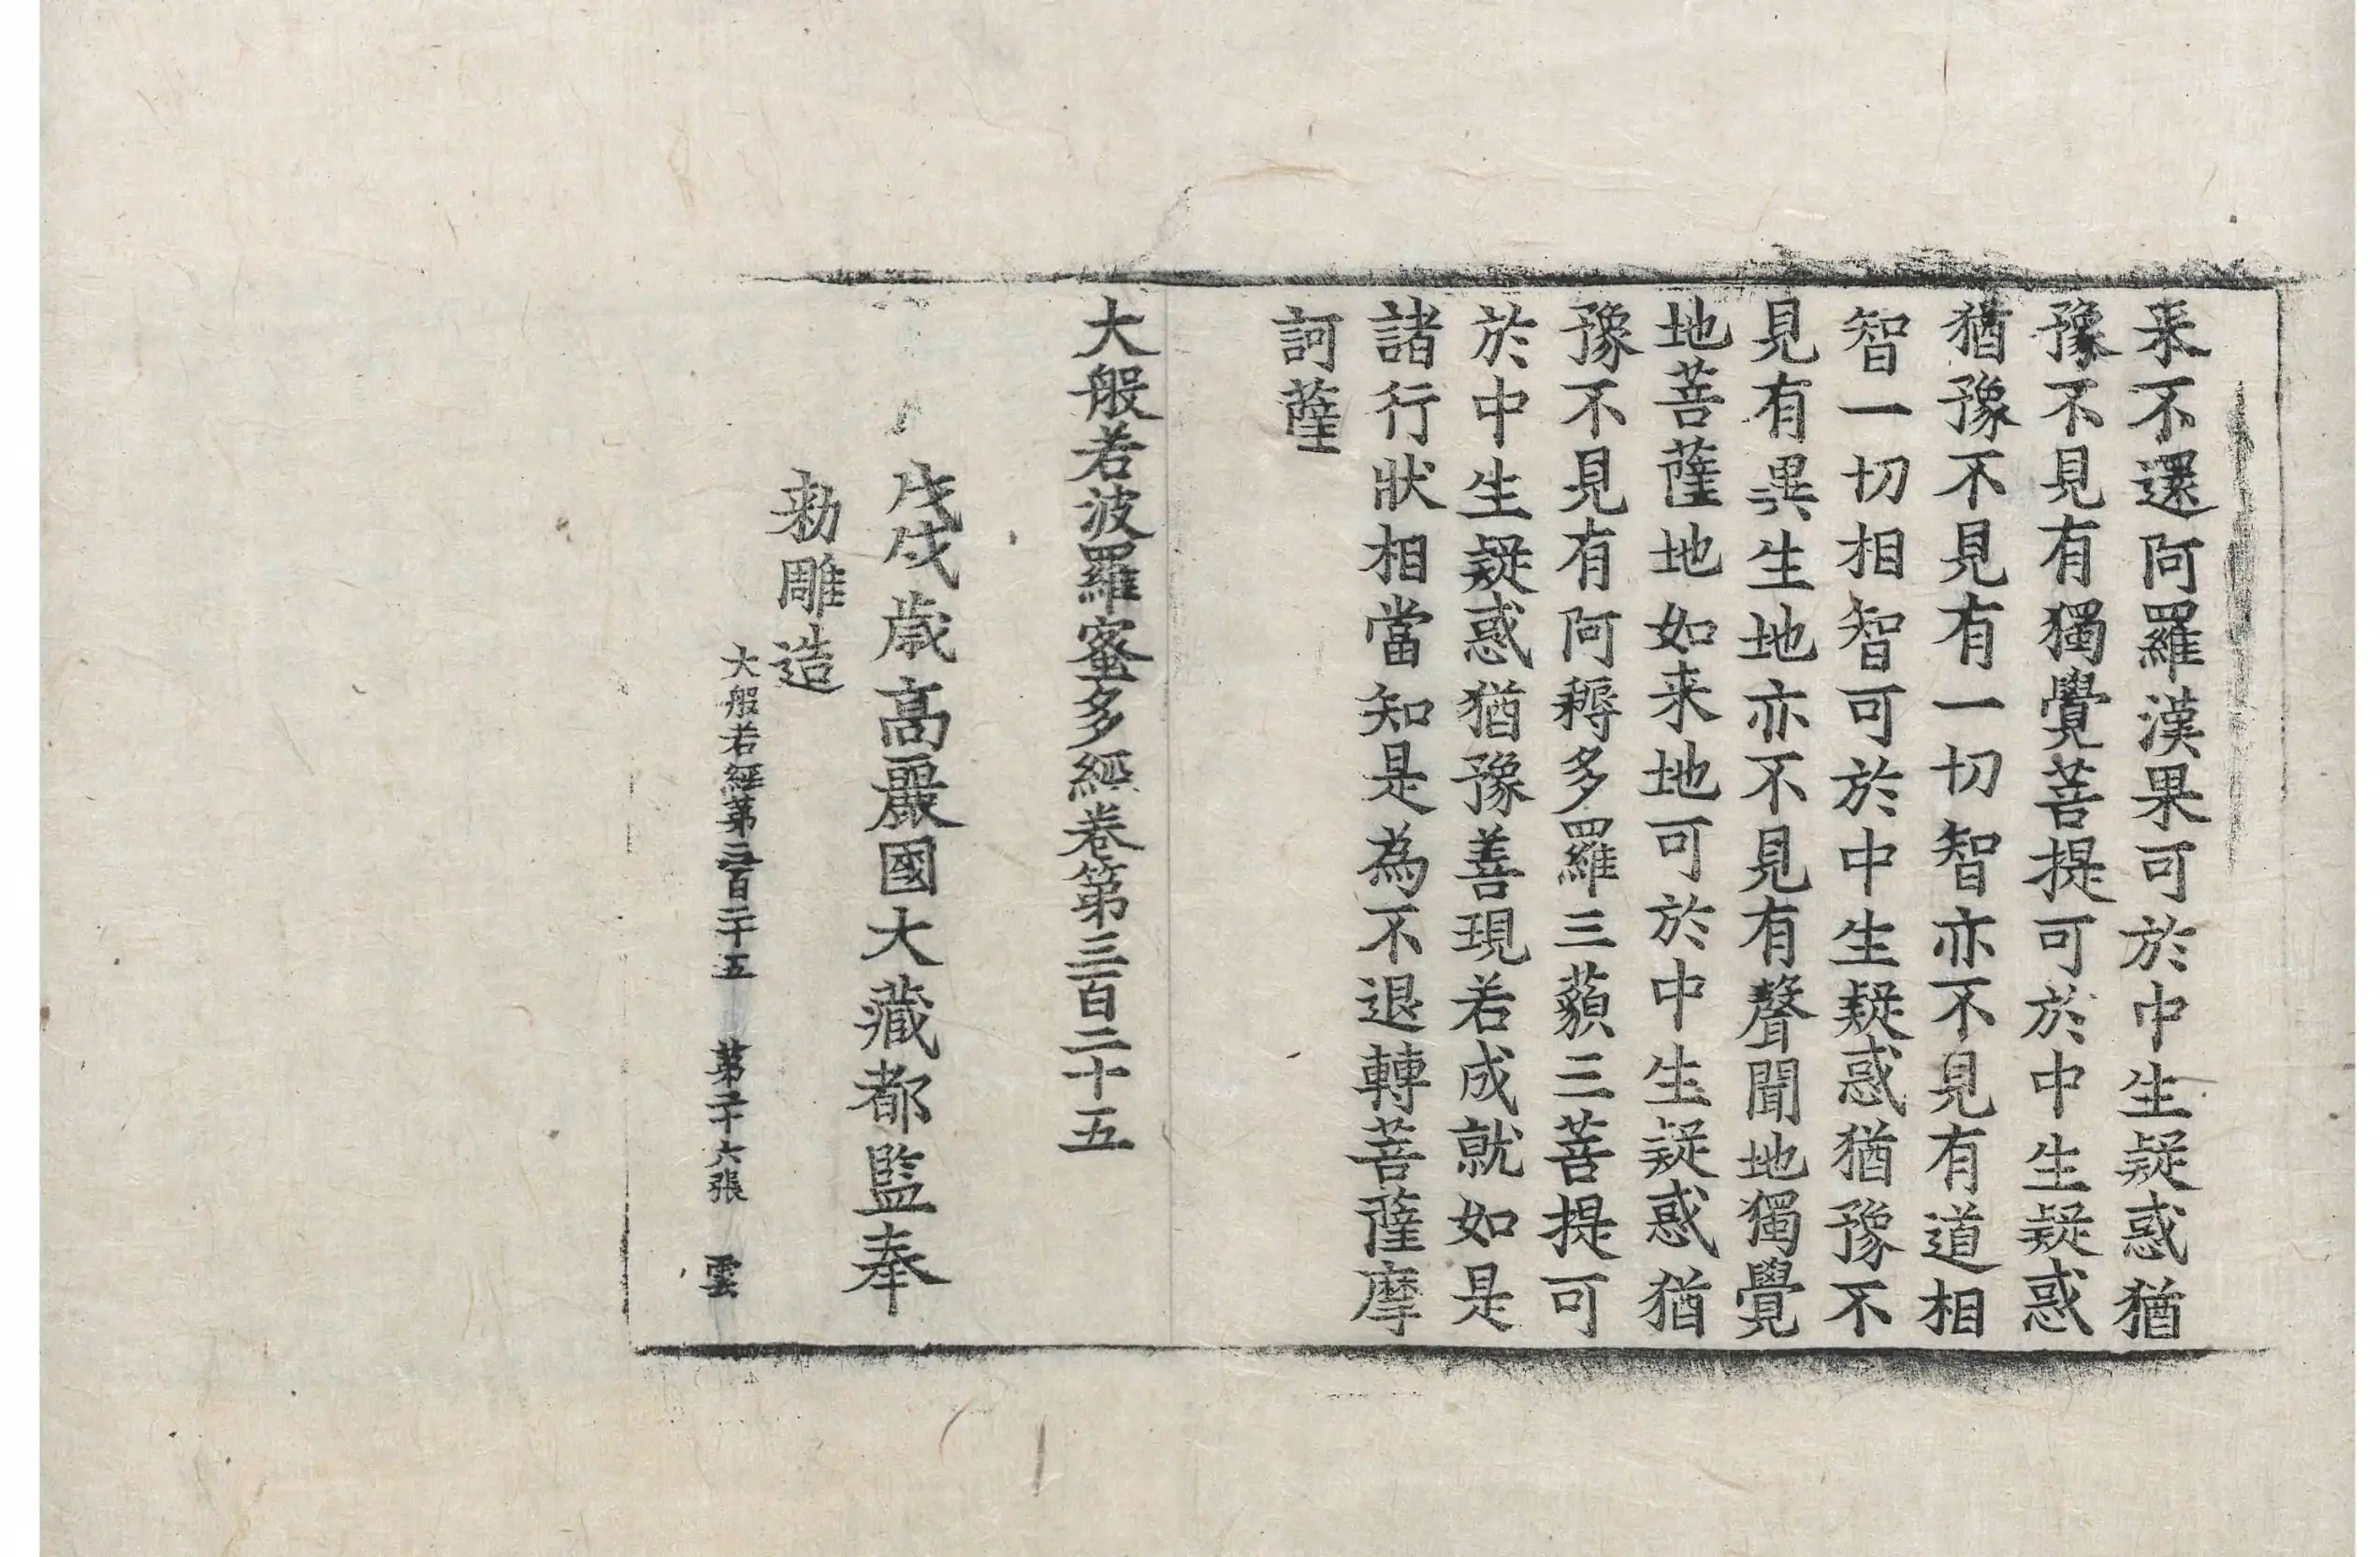 来不還阿羅漢果可於中生疑惑猶
豫不見有獨覺菩提可於中生疑惑
猶豫不見有一切智亦不見有道相
智一切相智可於中生疑惑猶豫不
見有異生地亦不見有聲聞地獨覺
地菩薩地如来地可於中生疑惑猶
豫不見有阿耨多羅三藐三菩提可
於中生疑惑猶豫善現若成就如是
諸行狀相當知是為不退轉菩薩摩
訶薩
大般若波羅蜜多經卷第三百二十五
戊戌歲高麗國大藏都監奉
勑雕造
大般若經第三百二十五 第二十六張 雲